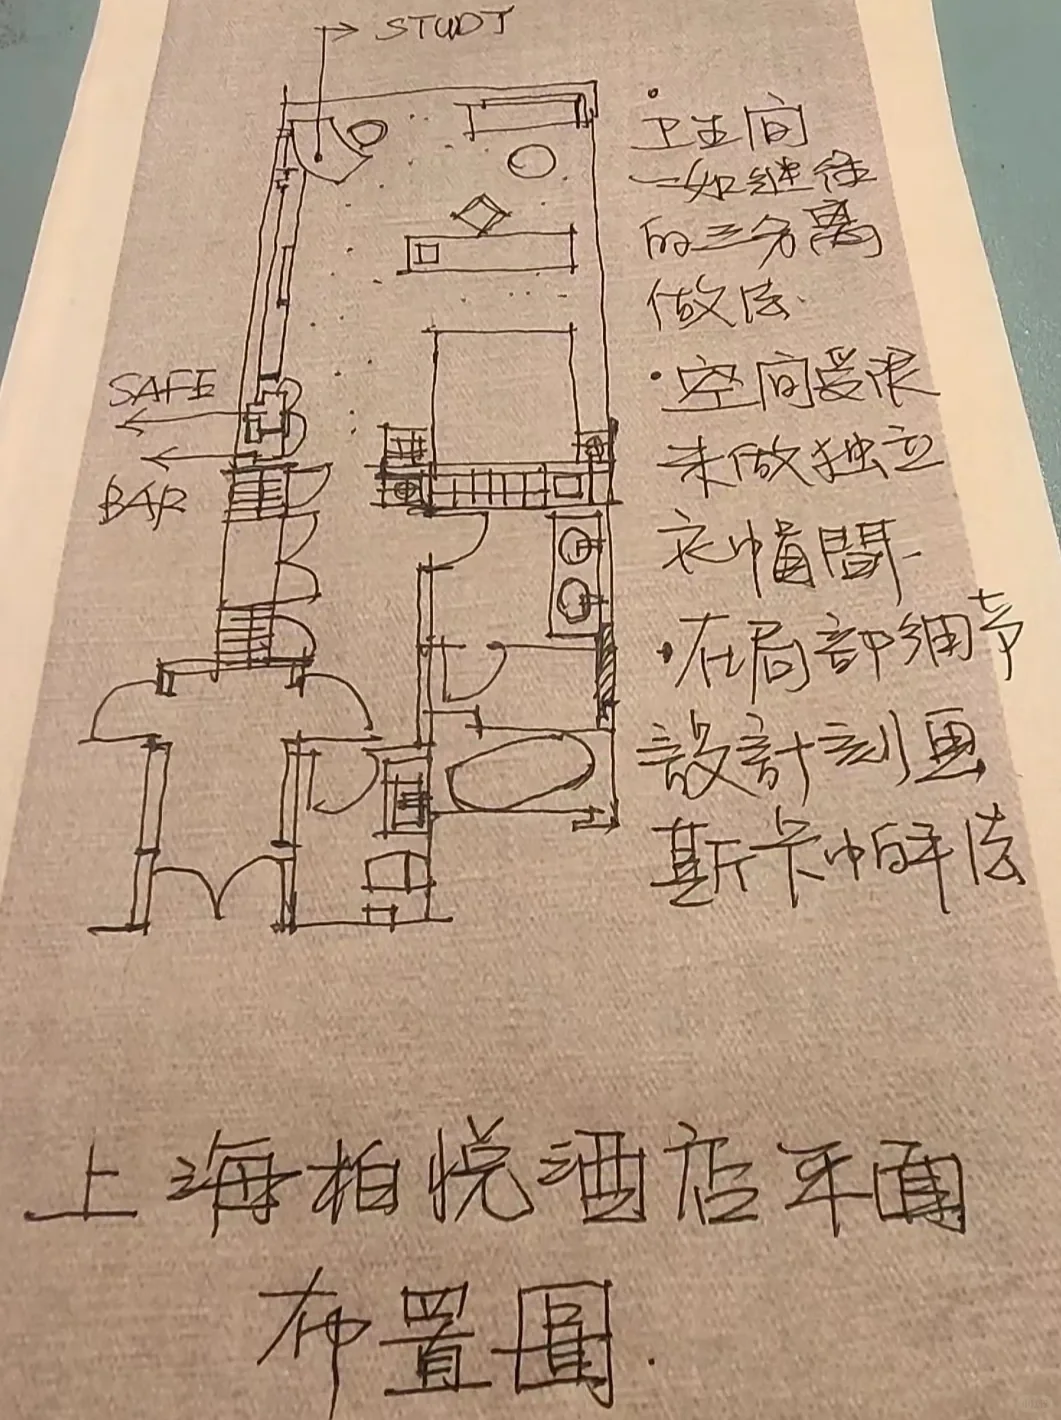 STUDY
卫生间
一如继往
的三分离
做法.
SAFE
·空间受限
BAR
未做独立
衣帽間.
·在局部细节
設計刻画
斯卡帕手法
上海柏悦酒店平面
布置圖.